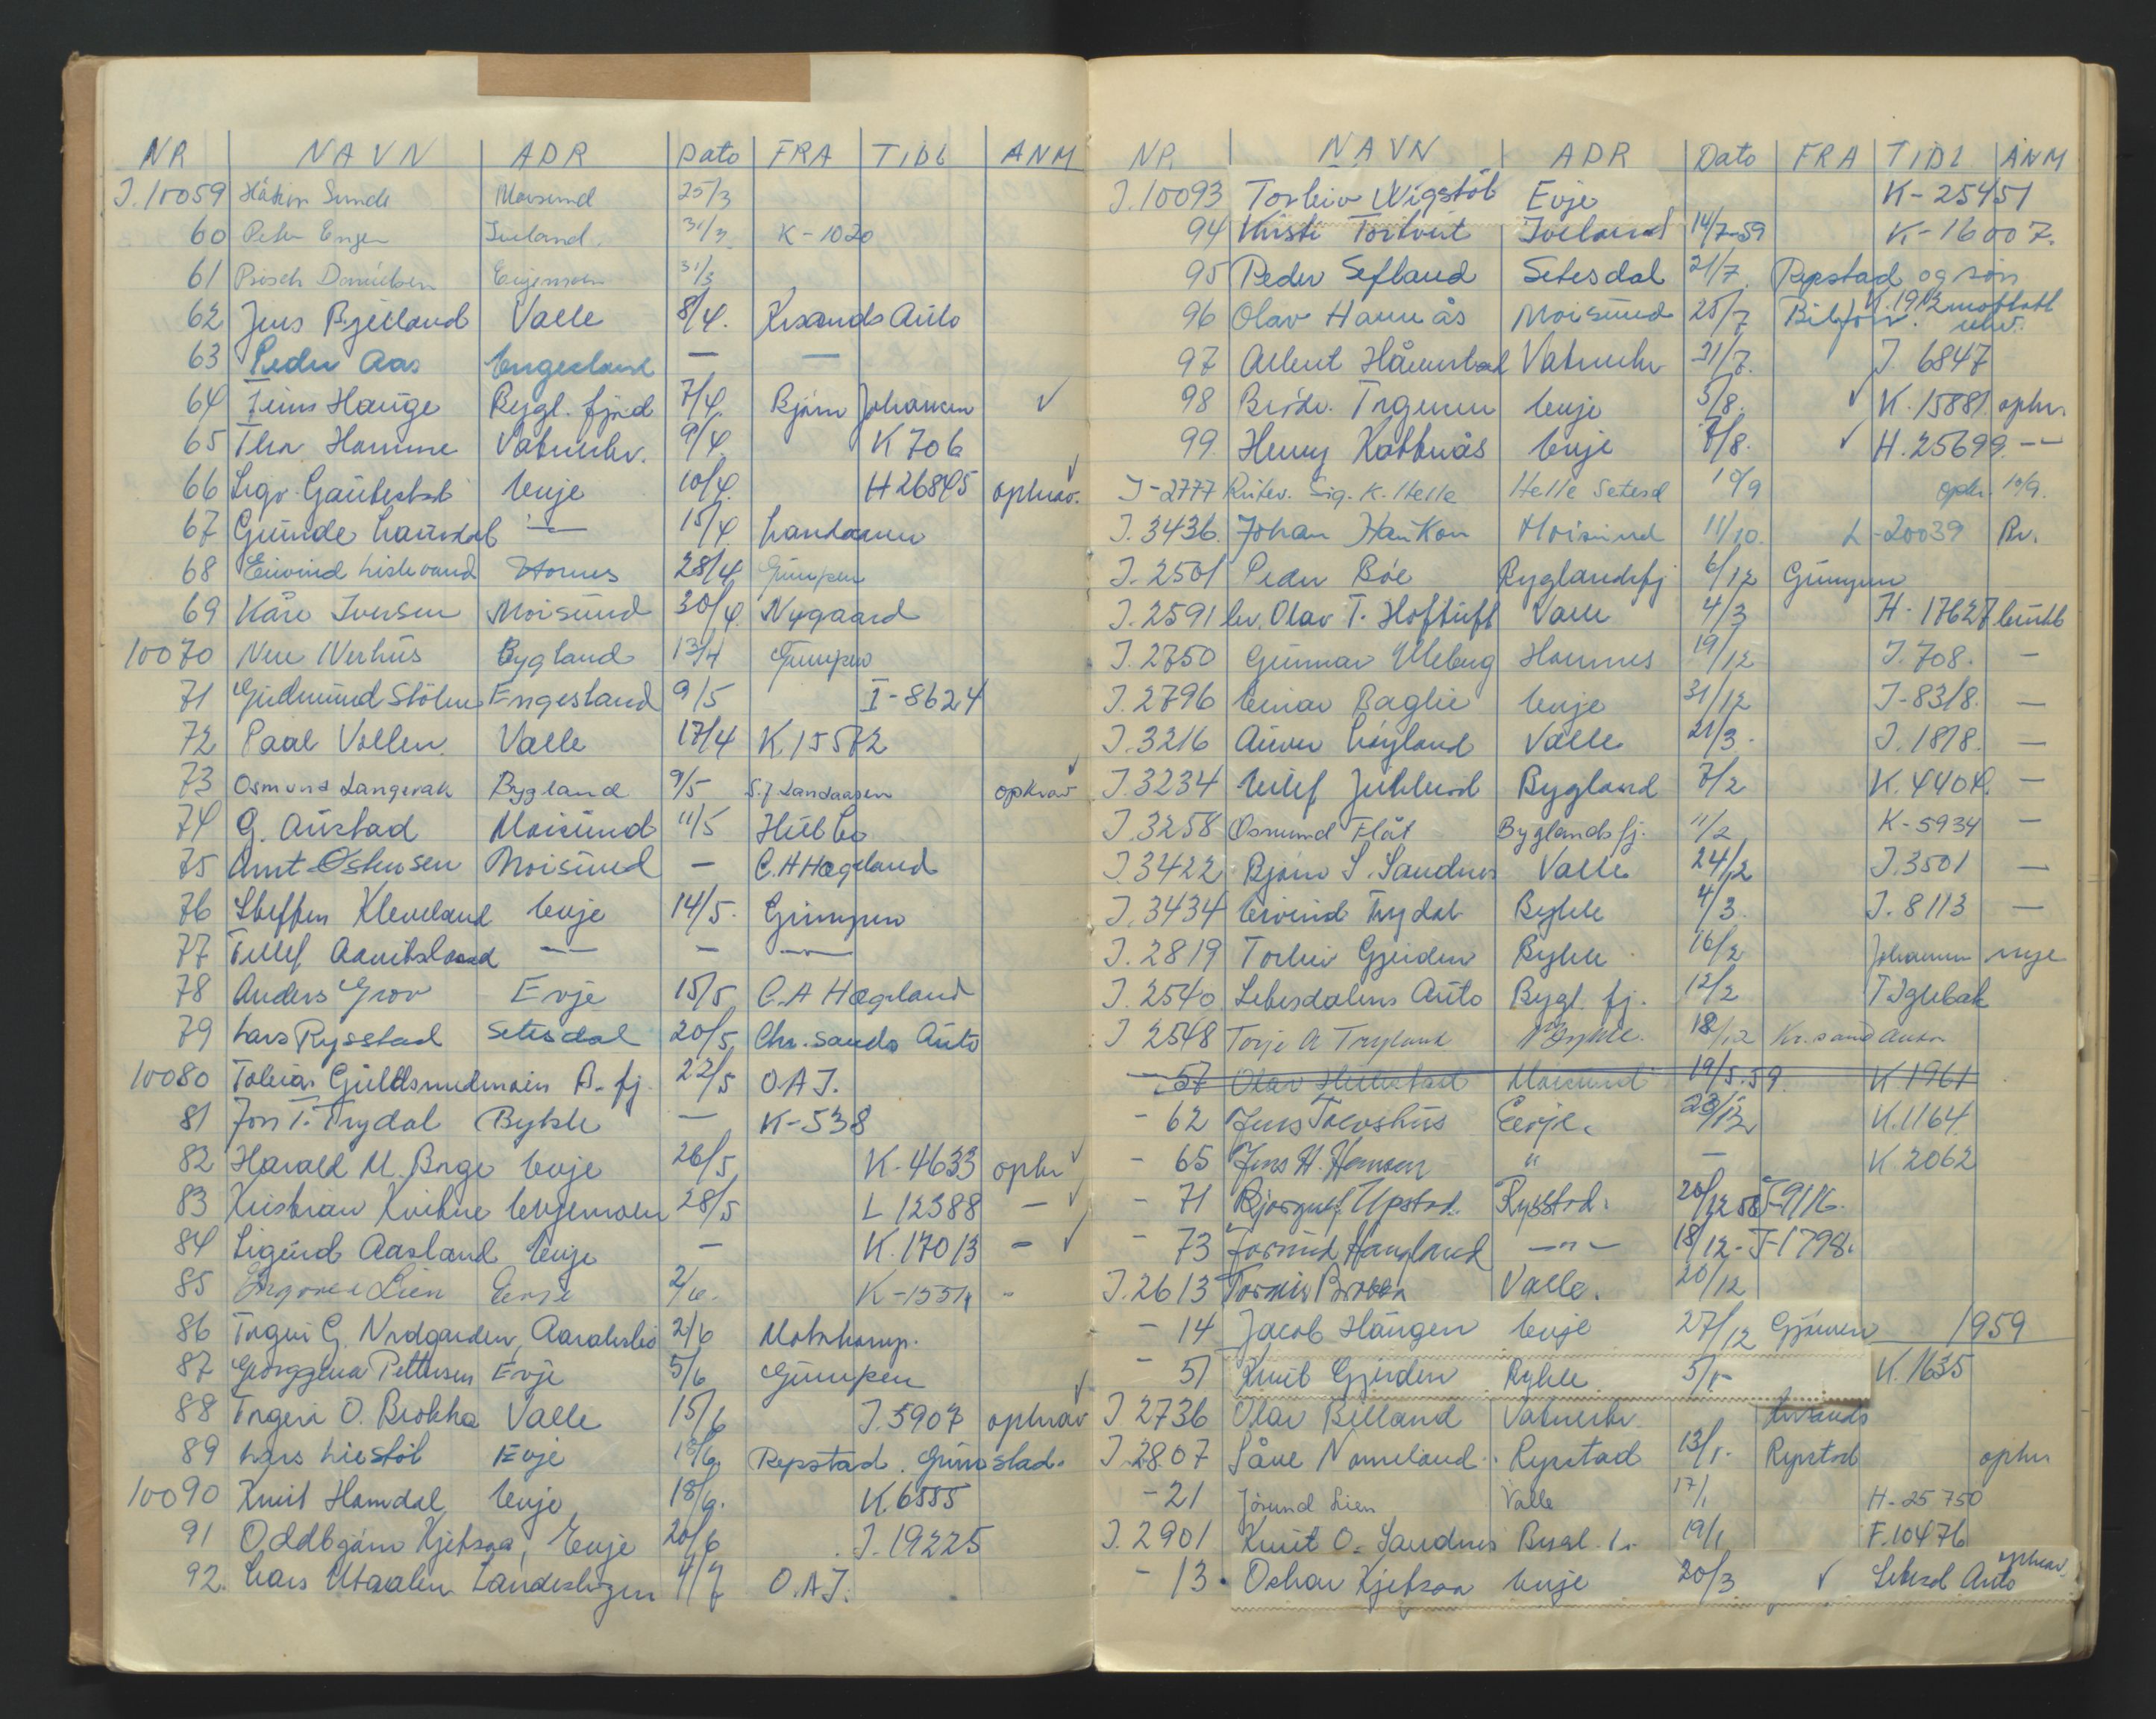 NR NAVN ADR Dato FRA TIDL ANM
I.10059 Håkon Sunde Moisund 25/3
60 Peter Enger Iveland. 31/3 K-1020
61 Danielsen Evjemoen 31/3
62 Jens Bjelland Valle 8/4. Krsands Auto
63 Peder Aas Engesland — —
64 Hauge Bygl. fjord 7/4 Bjørn Johansen ✓
65 Thor Homme Vatnedr. 9/4. K 706
66 Sigv. Gautestad Evje 10/4 H 26845 ophav. ✓
67 Gunde Laurdal — 15/4 Landaasen
68 Eivind Lislevand Hornes 28/4 Gumpen
69 Kåre Iversen Moisund 30/4 Nygaard
10070 Neri Nerhus Bygland 13/4 Gumpen
71 Gudmund Stølen Engesland 9/5 I-8624
72 Paal Vollen. Valle 17/4 K.15572
73 Osmund Langerak Bygland 9/5 S.J Landaasen ophav ✓
74 G. Austad Moisund 11/5 Hüb Co
75 Arnt Ostensen Moisund — C.A Hægeland
76 Steffen Kleveland Evje 14/5. Gumpen
77 Tellef — — —
78 Anders Grov Evje 15/5 C.A Hægeland
79 Lars Rysstad Setesdal 20/5 Chr.sands Auto
10080 Tobias Guldsmedmoen B. fj. 22/5 O.A.J.
81 Jon T. Trydal Bykle — K-538
82 Harald M. Berge Evje 26/5 K-4633 ophv ✓
83 Kristian Kvikne Evjemoen 28/5 L 12388 — ✓
84 Sigurd Aasland Evje — K.17013 — ✓
85 Lien Evje 2/6. "
86 Torgeir G. Nordgarden, 2/6 Motorkomp.
87 Pettersen Evje 5/6 Gumpen
88 Torgeir O. Brokke Valle 15/6 I.5907 ophav ✓
89 Lars Liestöl Evje 18/6. Repstad. Grimstad.
10090 Knut Homdal Evje 18/6. K.6555
91 Oddbjørn Kjetsaa, Evje 20/6 I-19225
92. Lars Utaalen Landeskogen 4/7 O.A.J.
NR NAVN ADR Dato FRA TIDL ANM
I.10093 Torleiv Wigstöl Evje K-25451
94 Kristi Tortveit Iveland 14/7-59 K-16007.
95 Peder Sefland Setesdal 21/7. Repstad og søn
96 Olav Hannås Moisund 25/7 Bilforr.
97 Albert Vatnedr 31/7. I. 6847
98 Brödr. Torgersen Evje 5/8. ✓ K.15881 ophv.
99. Henry Kattnås Evje 7/8. ✓ H.25699. —
I-2777 Sig. K. Helle Helle Setesd 10/9 ophv. 10/9.
I.3436. Johan Haukom Moisund 11/10. L-20039 Rv.
I-2501 Peder Bøe Byglandsfj 6/12 Gumpen
I.2591 Olav T. Hoftuft Valle 4/3 H-17627
I.2750 Gunnar Uleberg Hornnes 19/12 I.708. —
I.2796 Einar Baglie Evje 31/12 I-8318. —
I.3216 Høyland Valle 21/3. I.1818. —
I.3234 Bygland 7/2 K.4404. —
I.3258 Osmund Flåt Byglandsfj. 11/2 K-5934 —
I.3422 Bjørn S. Sandnes Valle 24/12 I.3501 —
I.3434 Eivind Trydal Bykle 4/3. I.8113 —
I.2819 Torleiv Gjerden Bykle 16/2 Johansen nye
I.2540 Setesdalens Auto Bygl. fj. 12/2 T Iglebæk
I 2548 Torje A Trydal Bykle. 18/12 Kr.sand Auto
- 57 Olav Moisund 19/5.59. K 1961
- 62 Jens Evje. 23/12 K.1164
- 65 Jens H. Hansen " — K.2062
- 71 Bjørgulf Upstad. Rysstad. 20/12 58 I-9116.
- 73 Jorund Haugland —"— 18/12- I-1798.
I.2613 Valle. 20/12
- 14 Jacob Haugen Evje 27/12 1959
- 51 Knut Gjerden Bykle 5/1- K.1635
I 2736 Olav Bjelland Vatnedr. krsands
I.2807 Såve Nomeland Rysstad 13/1. Rysstad ophv
- 21 Jorund Lien Valle 17/1 H-25750
I.2901 Knut O. Sandnes 19/1 F.10476
- 13. Oskar Kjetsaa Evje 20/3. ✓ Setesd Auto ophav.